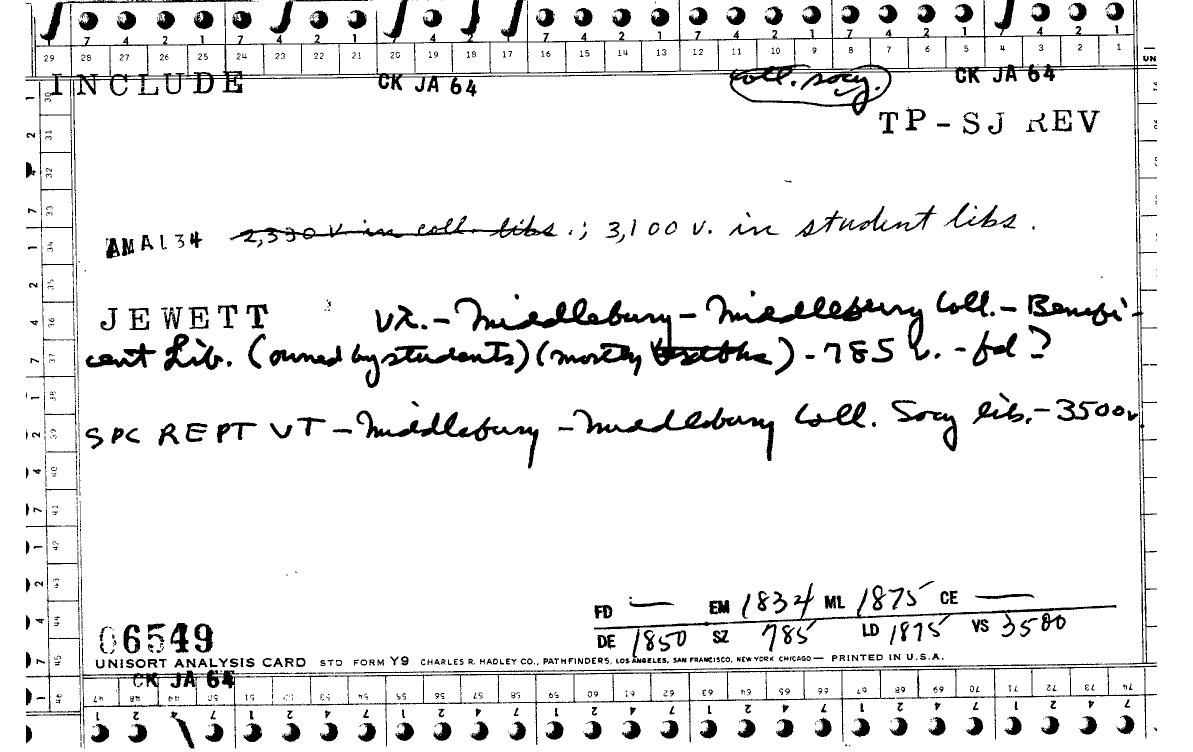 7 4 2 1 7 4 2 1 7 4 2 1 7 4 2 1 7 4 2 1 7 4 2 1
29 28 27 26 25 24 23 22 21 20 19 18 17 16 15 14 13 12 11 10 9 8 7 6 5 4 3 2 1
INCLUDE CK JA 64 coll. socy. CK JA 64
TP-SJ REV
AMAL34 2,330 v. in coll. libs.; 3,100 v. in student libs.
JEWETT Vt. - Middlebury - Middlebury Coll. - Benefi-
cent Lib. (owned by students) (mostly textbks) - 785 v. - fd ?
SPC REPT VT - Middlebury - Middlebury Coll. Socy lib. - 3500v.
FD — EM 1834 ML 1875 CE —
DE 1850 SZ 785 LD 1875 VS 3500
06549
UNISORT ANALYSIS CARD STD FORM Y9 CHARLES R. HADLEY CO., PATHFINDERS, LOS ANGELES, SAN FRANCISCO, NEW YORK CHICAGO — PRINTED IN U.S.A.
CK JA 64